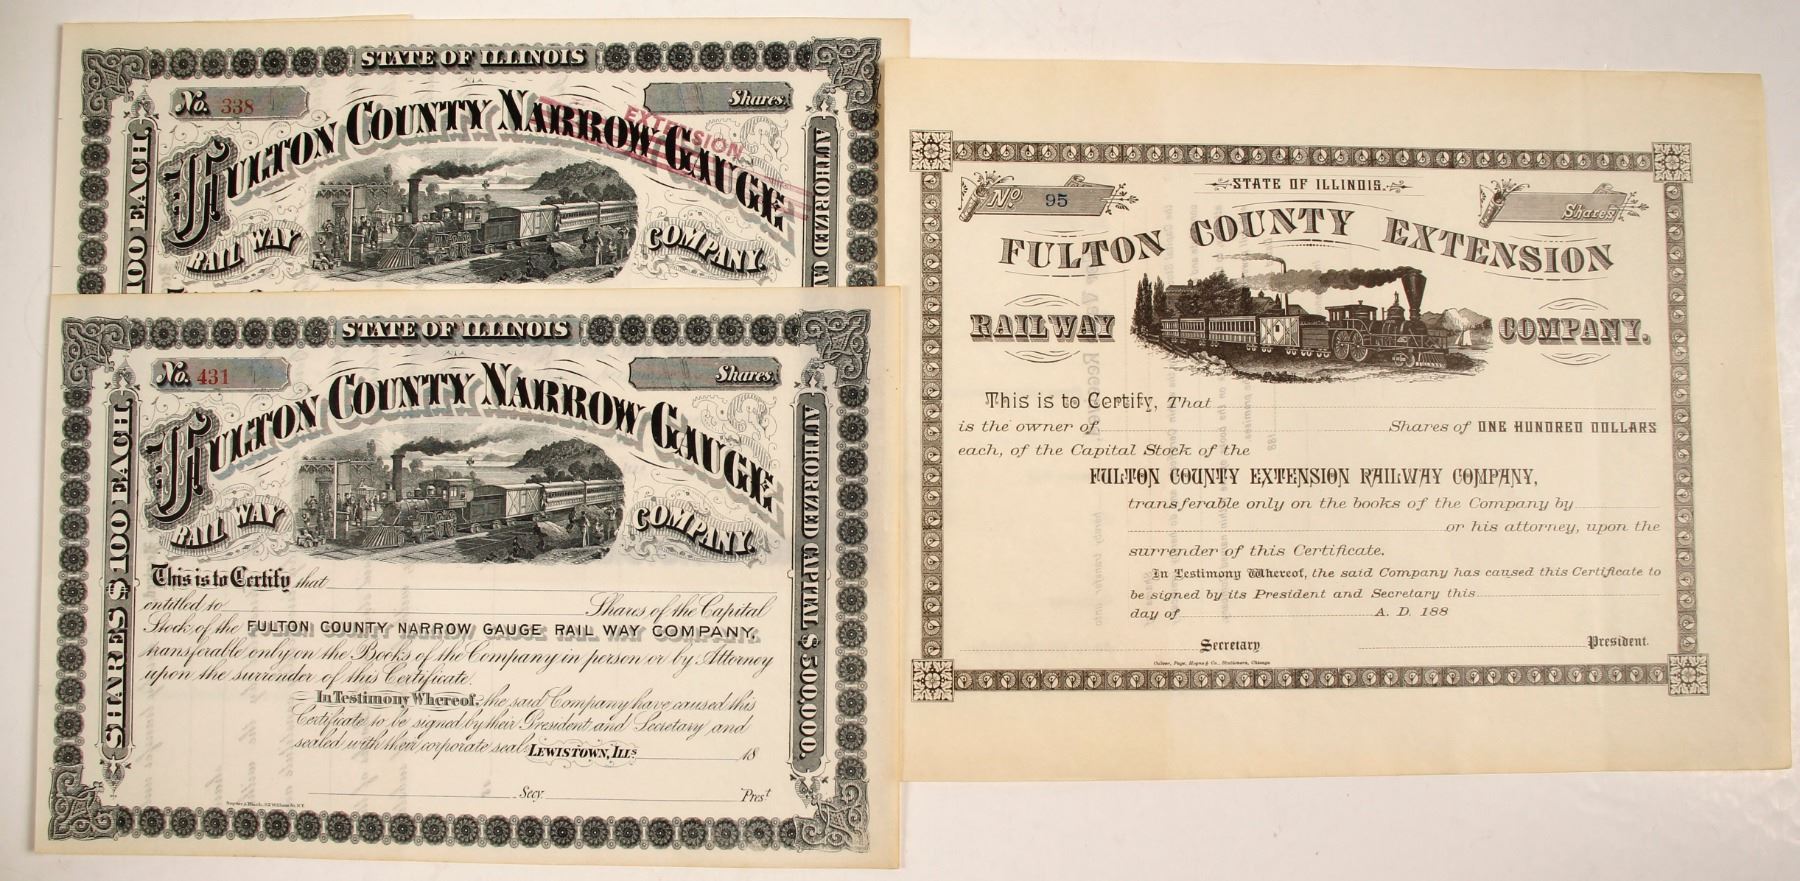 STATE OF ILLINOIS
No. 338
Shares.
EXTENSION
FULTON COUNTY NARROW GAUGE
RAIL WAY COMPANY.
100 EACH.
STATE OF ILLINOIS
No. 431
Shares.
FULTON COUNTY NARROW GAUGE
RAIL WAY COMPANY.
SHARES $100 EACH.
AUTHORIZED CAPITAL $500,000.
This is to Certify that
entitled to Shares of the Capital
Stock of the FULTON COUNTY NARROW GAUGE RAIL WAY COMPANY,
transferable only on the Books of the Company in person or by Attorney
upon the surrender of this Certificate.
In Testimony Whereof, the said Company have caused this
Certificate to be signed by their President and Secretary and
sealed with their corporate seal. LEWISTOWN, ILLs. 18
Secy. Prest
STATE OF ILLINOIS.
No 95
Shares
FULTON COUNTY EXTENSION
RAILWAY COMPANY.
This is to Certify, That
is the owner of Shares of ONE HUNDRED DOLLARS
each, of the Capital Stock of the
FULTON COUNTY EXTENSION RAILWAY COMPANY,
transferable only on the books of the Company by
or his attorney, upon the
surrender of this Certificate.
In Testimony Whereof, the said Company has caused this Certificate to
be signed by its President and Secretary this
day of A. D. 188
Secretary President.
Culver, Page, Hoyne & Co., Stationers, Chicago